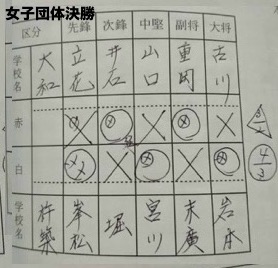 女子団体決勝
区分 先鋒 次鋒 中堅 副将 大将
学校名 大和 立花 井石 山口 重岡 古川
赤
白
4/3
学校名 杵築 峯松 堀 宮川 末廣 岩本